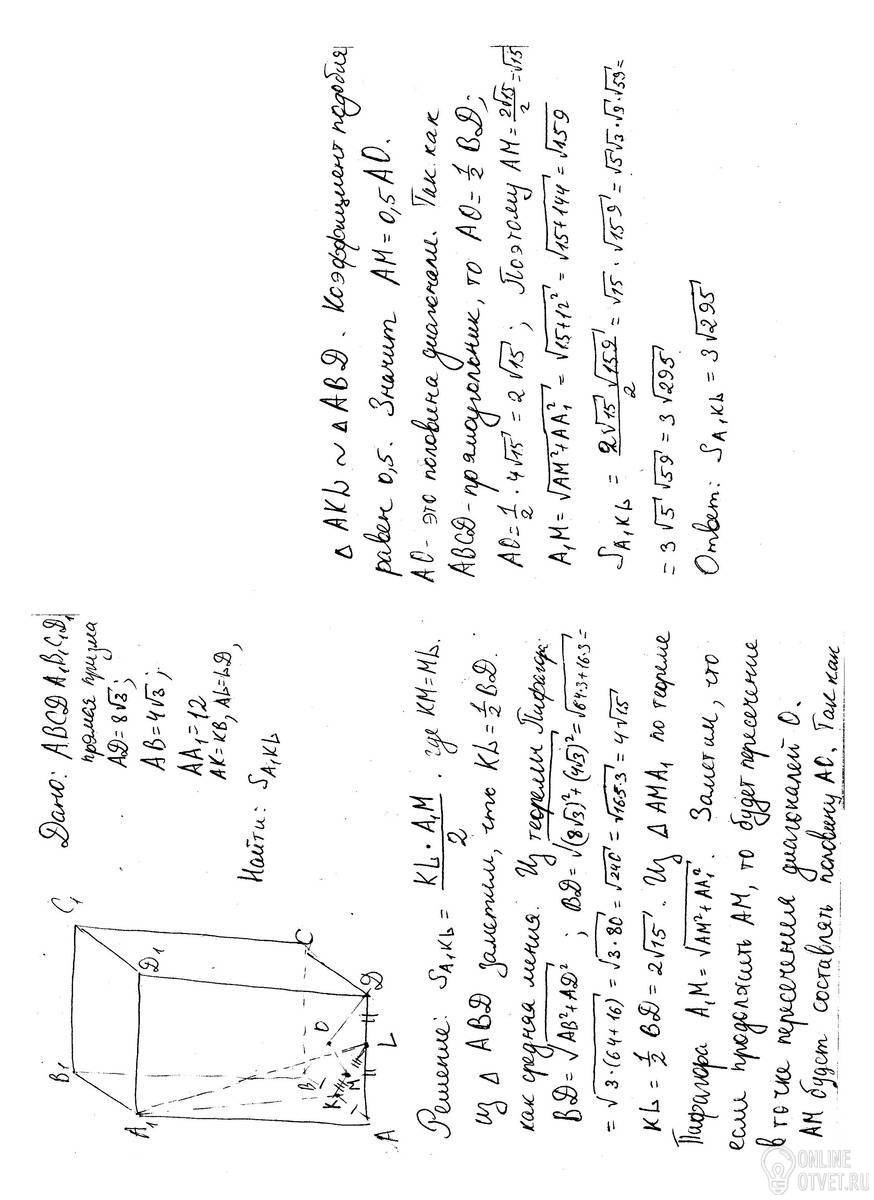 Дано: ABCDA₁B₁C₁D₁
прямая призма
AD=8√3;
AB=4√3;
AA₁=12
AK=KB, AL=LD,
Найти: S_A₁KL
B₁
C₁
A₁
D₁
B
C
K
M
O
A
L
D
Решение: S_A₁KL = KL·A₁M/2, где KM=ML.
Из △ ABD заметим, что KL=½BD.
как средняя линия. Из теоремы Пифагора
BD=√(AB²+AD²); BD=√((8√3)²+(4√3)²)=√(64·3+16·3)=
=√(3·(64+16))=√(3·80)=√240=√(16·5·3)=4√15
KL=½BD=2√15. Из △AMA₁ по теореме
Пифагора A₁M=√(AM²+AA₁²). Заметим, что
если продолжить AM, то будет пересечение
в точке пересечения диагоналей O.
AM будет составлять половину AO. Так как
△ AKL ~ △ ABD. Коэффициент подобия
равен 0,5. Значит AM=0,5AO.
AO - это половина диагонали. Так как
ABCD - прямоугольник, то AO=½BD;
AO=½·4√15=2√15; Поэтому AM=2√15/2=√15
A₁M=√(AM²+AA₁²)=√(15+12²)=√(15+144)=√159
S_A₁KL = 2√15√159/2=√15·√159=√5√3·√3·√59=
=3√5√59=3√295
Ответ: S_A₁KL=3√295
ONLINE
OTVET.RU